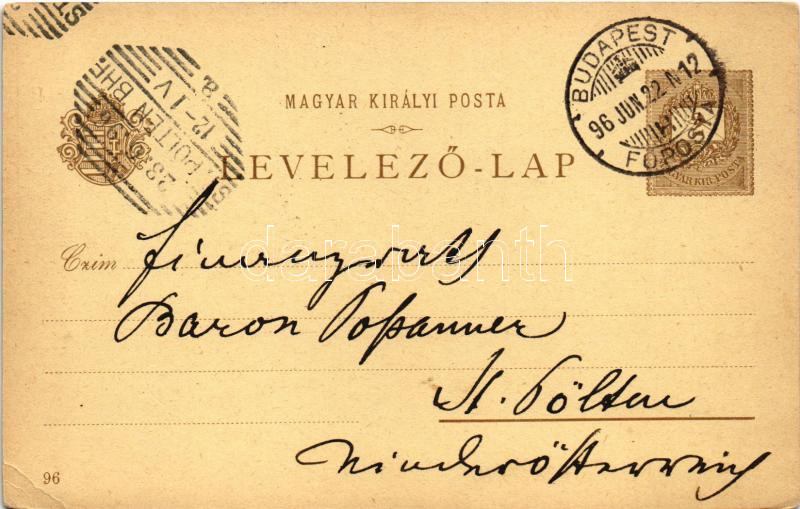 MAGYAR KIRÁLYI POSTA
LEVELEZŐ-LAP
BUDAPEST
96 JUN. 22. N 12
FŐPOSTA
MAGYAR KIR. POSTA
ST. PÖLTEN BHF.
23
12-1 V
Czim
Finanzrath
Baron Poßanner
St. Pölten
Niederösterreich
96
darabanth